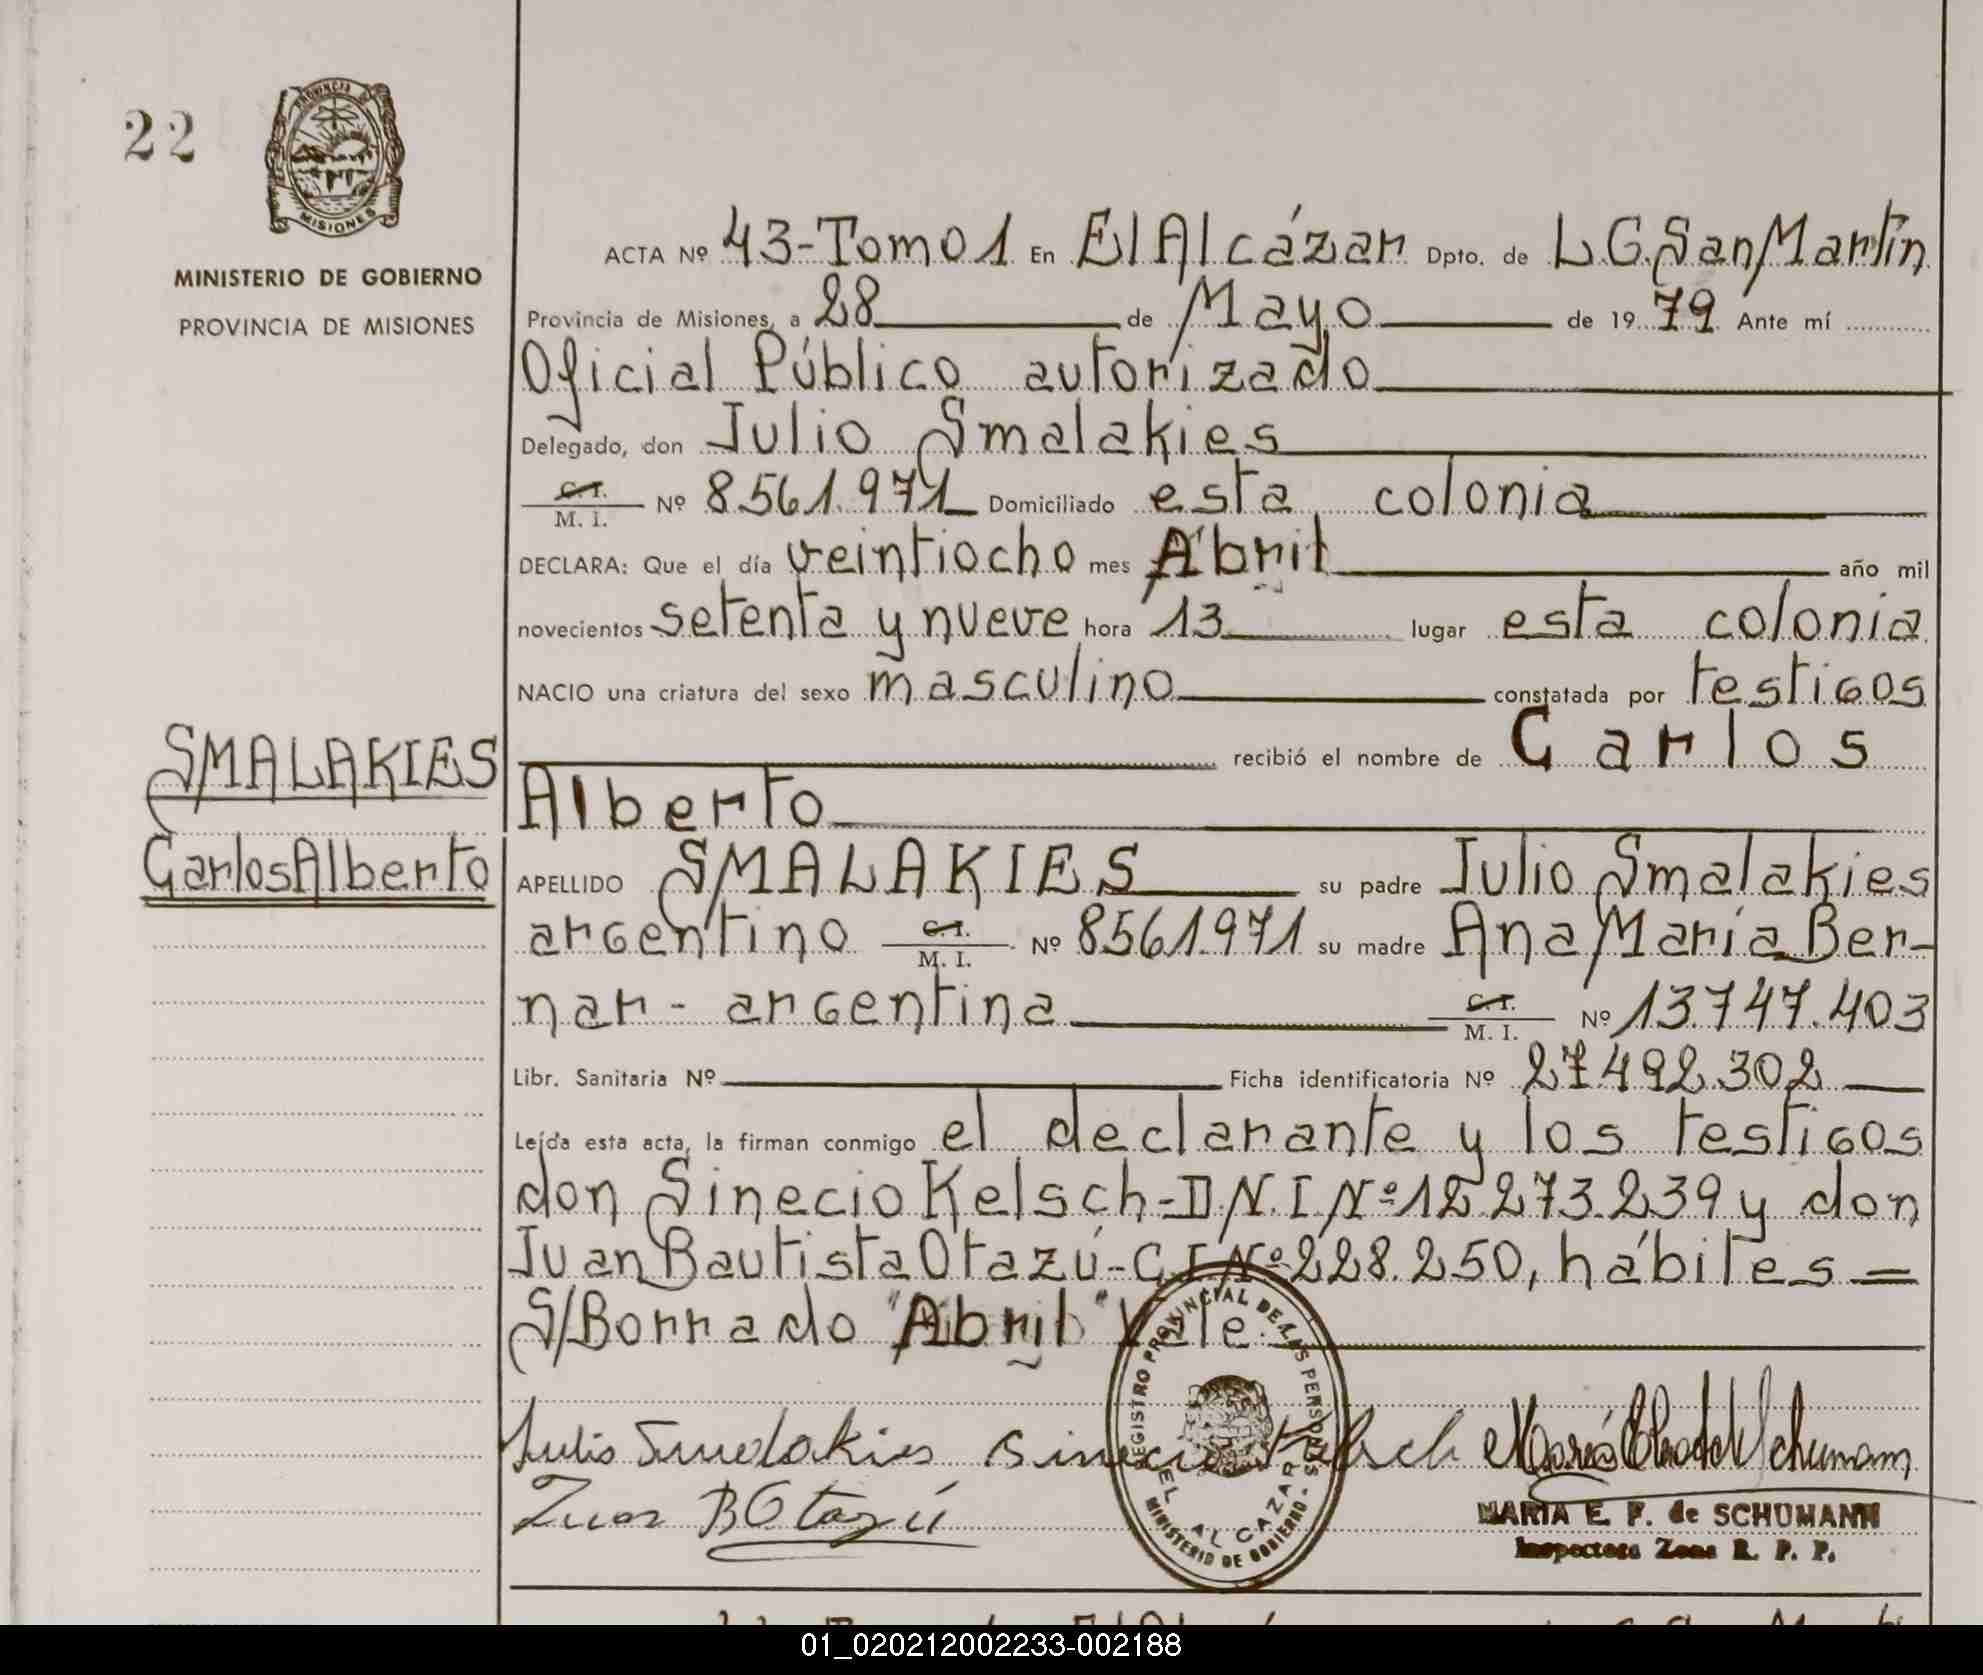 22
PROVINCIA DE
MISIONES
MINISTERIO DE GOBIERNO
PROVINCIA DE MISIONES
SMALAKIES
Carlos Alberto
ACTA Nº 43-Tomo 1 En El Alcázar Dpto. de L.G.San Martín
Provincia de Misiones, a 28 de Mayo de 19 79 Ante mí
Oficial Público autorizado
Delegado, don Julio Smalakies
C.I. / M. I. Nº 8.561.971 Domiciliado esta colonia
DECLARA: Que el día veintiocho mes Abril año mil
novecientos setenta y nueve hora 13 lugar esta colonia
NACIO una criatura del sexo masculino constatada por testigos
recibió el nombre de Carlos
Alberto
APELLIDO SMALAKIES su padre Julio Smalakies
argentino C.I. / M. I. Nº 8561.971 su madre Ana María Ber-
nar - argentina C.I. / M. I. Nº 13.747.403
Libr. Sanitaria Nº Ficha identificatoria Nº 27.492.302
Leída esta acta, la firman conmigo el declarante y los testigos
don Sinecio Kelsch-D.N.I.Nº 12.273.239 y don
Juan Bautista Otazú-C.I.Nº 228.250, hábiles =
S/Borrado "Abril" Vale.
REGISTRO PROVINCIAL DE LAS PERSONAS
EL ALCAZAR
MINISTERIO DE GOBIERNO
Julio Smalakies Sinecio Kelsch
Juan B Otazú
MARIA E. F. de SCHUMANN
Inspectora Zona R. P. P.
01_020212002233-002188